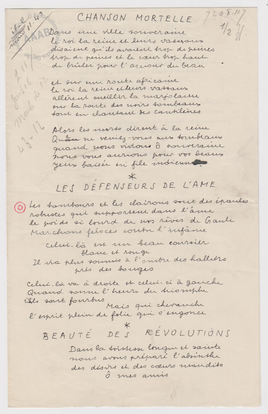 CHANSON MORTELLE
Dans une ville souveraine
le roi la reine et leurs vassaux
disaient qu'ils avaient trop de peines
trop de peines et le cœur trop haut
du brûler pour l'amour du beau
et sur une route africaine
le roi la reine et leurs vassaux
allèrent cueillir la marjolaine
sur la route des noirs tombeaux
tout en chantant des cantilènes
Alors les morts dirent à la reine
quand nous vidons à souveraine
nous vous aurions pour vos beaux
yeux baisés en file indienne
*
LES DÉFENSEURS DE L'AME
Les tambours et les clairons sont des épaules
robustes qui supportent dans l'âme
le poids si lourd de nos rêves de Gaule
Marchons féroces contre l'infâme
Celui-là est un beau coursier
blanc et rouge
Il ira plus soumis à l'ombre des halliers
près des bouges
Celui-là va à droite et celui-ci à gauche
Quand sonne l'heure du triomphe
Ils sont fourbus
Mais qui chevauche
l'esprit plein de folie qui s'engonce
*
BEAUTÉ DES RÉVOLUTIONS
Dans la boisson longue et sainte
nous avons préparé l'absinthe
des désirs et des cœurs maudits
Ô mes amis